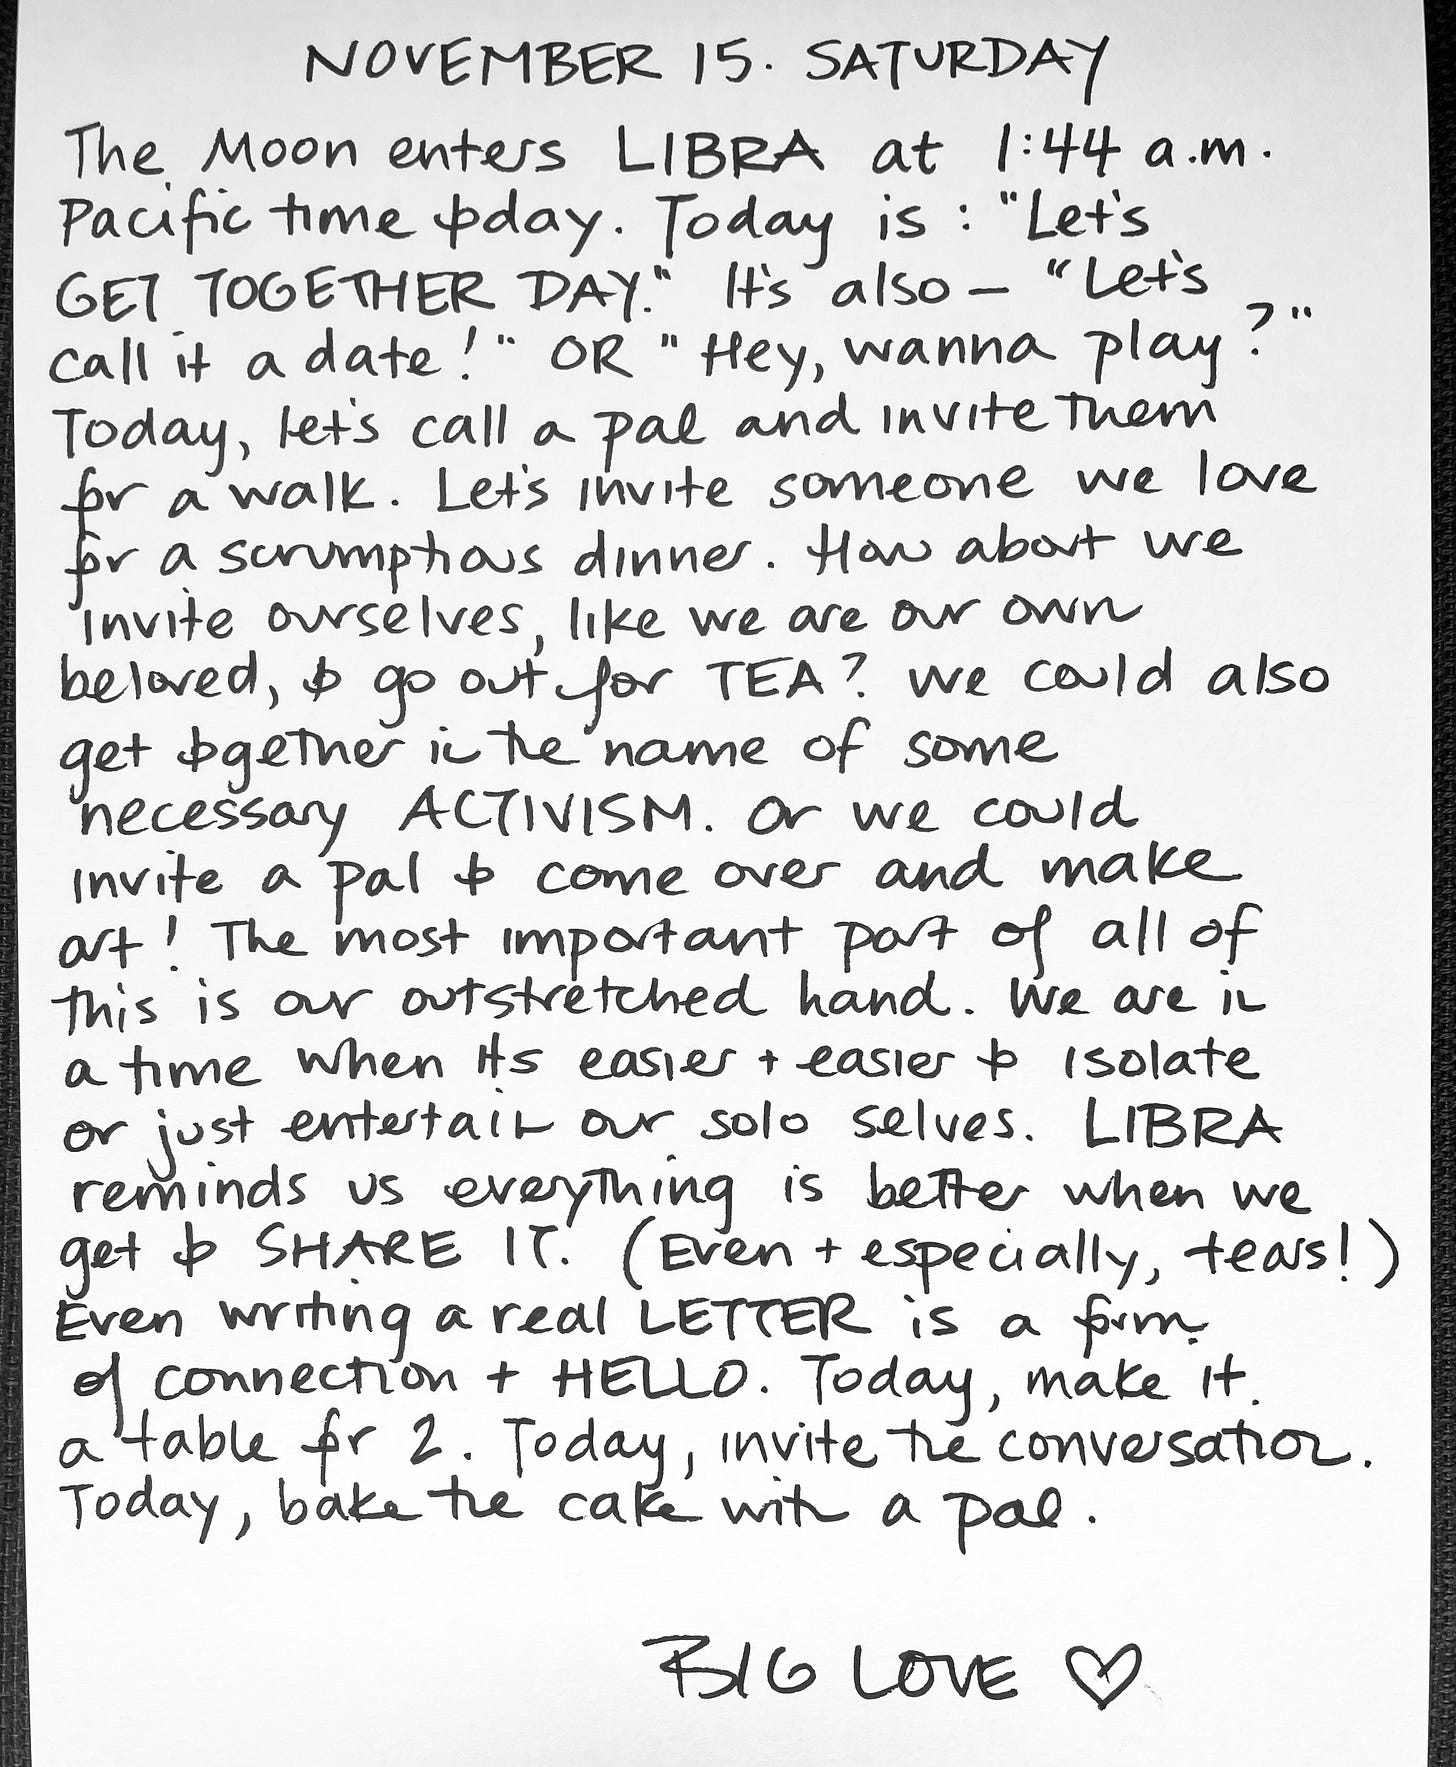 NOVEMBER 15. SATURDAY
The Moon enters LIBRA at 1:44 a.m.
Pacific time today. Today is: "Let's
GET TOGETHER DAY." It's also – "Let's
call it a date!" OR "Hey, wanna play?"
Today, let's call a pal and invite them
for a walk. Let's invite someone we love
for a scrumptious dinner. How about we
invite ourselves, like we are our own
beloved, to go out for TEA? We could also
get together in the name of some
necessary ACTIVISM. Or we could
invite a pal to come over and make
art! The most important part of all of
this is our outstretched hand. We are in
a time when it's easier + easier to isolate
or just entertain our solo selves. LIBRA
reminds us everything is better when we
get to SHARE IT. (Even + especially, tears!)
Even writing a real LETTER is a form
of connection + HELLO. Today, make it
a table for 2. Today, invite the conversation.
Today, bake the cake with a pal.
BIG LOVE ♡